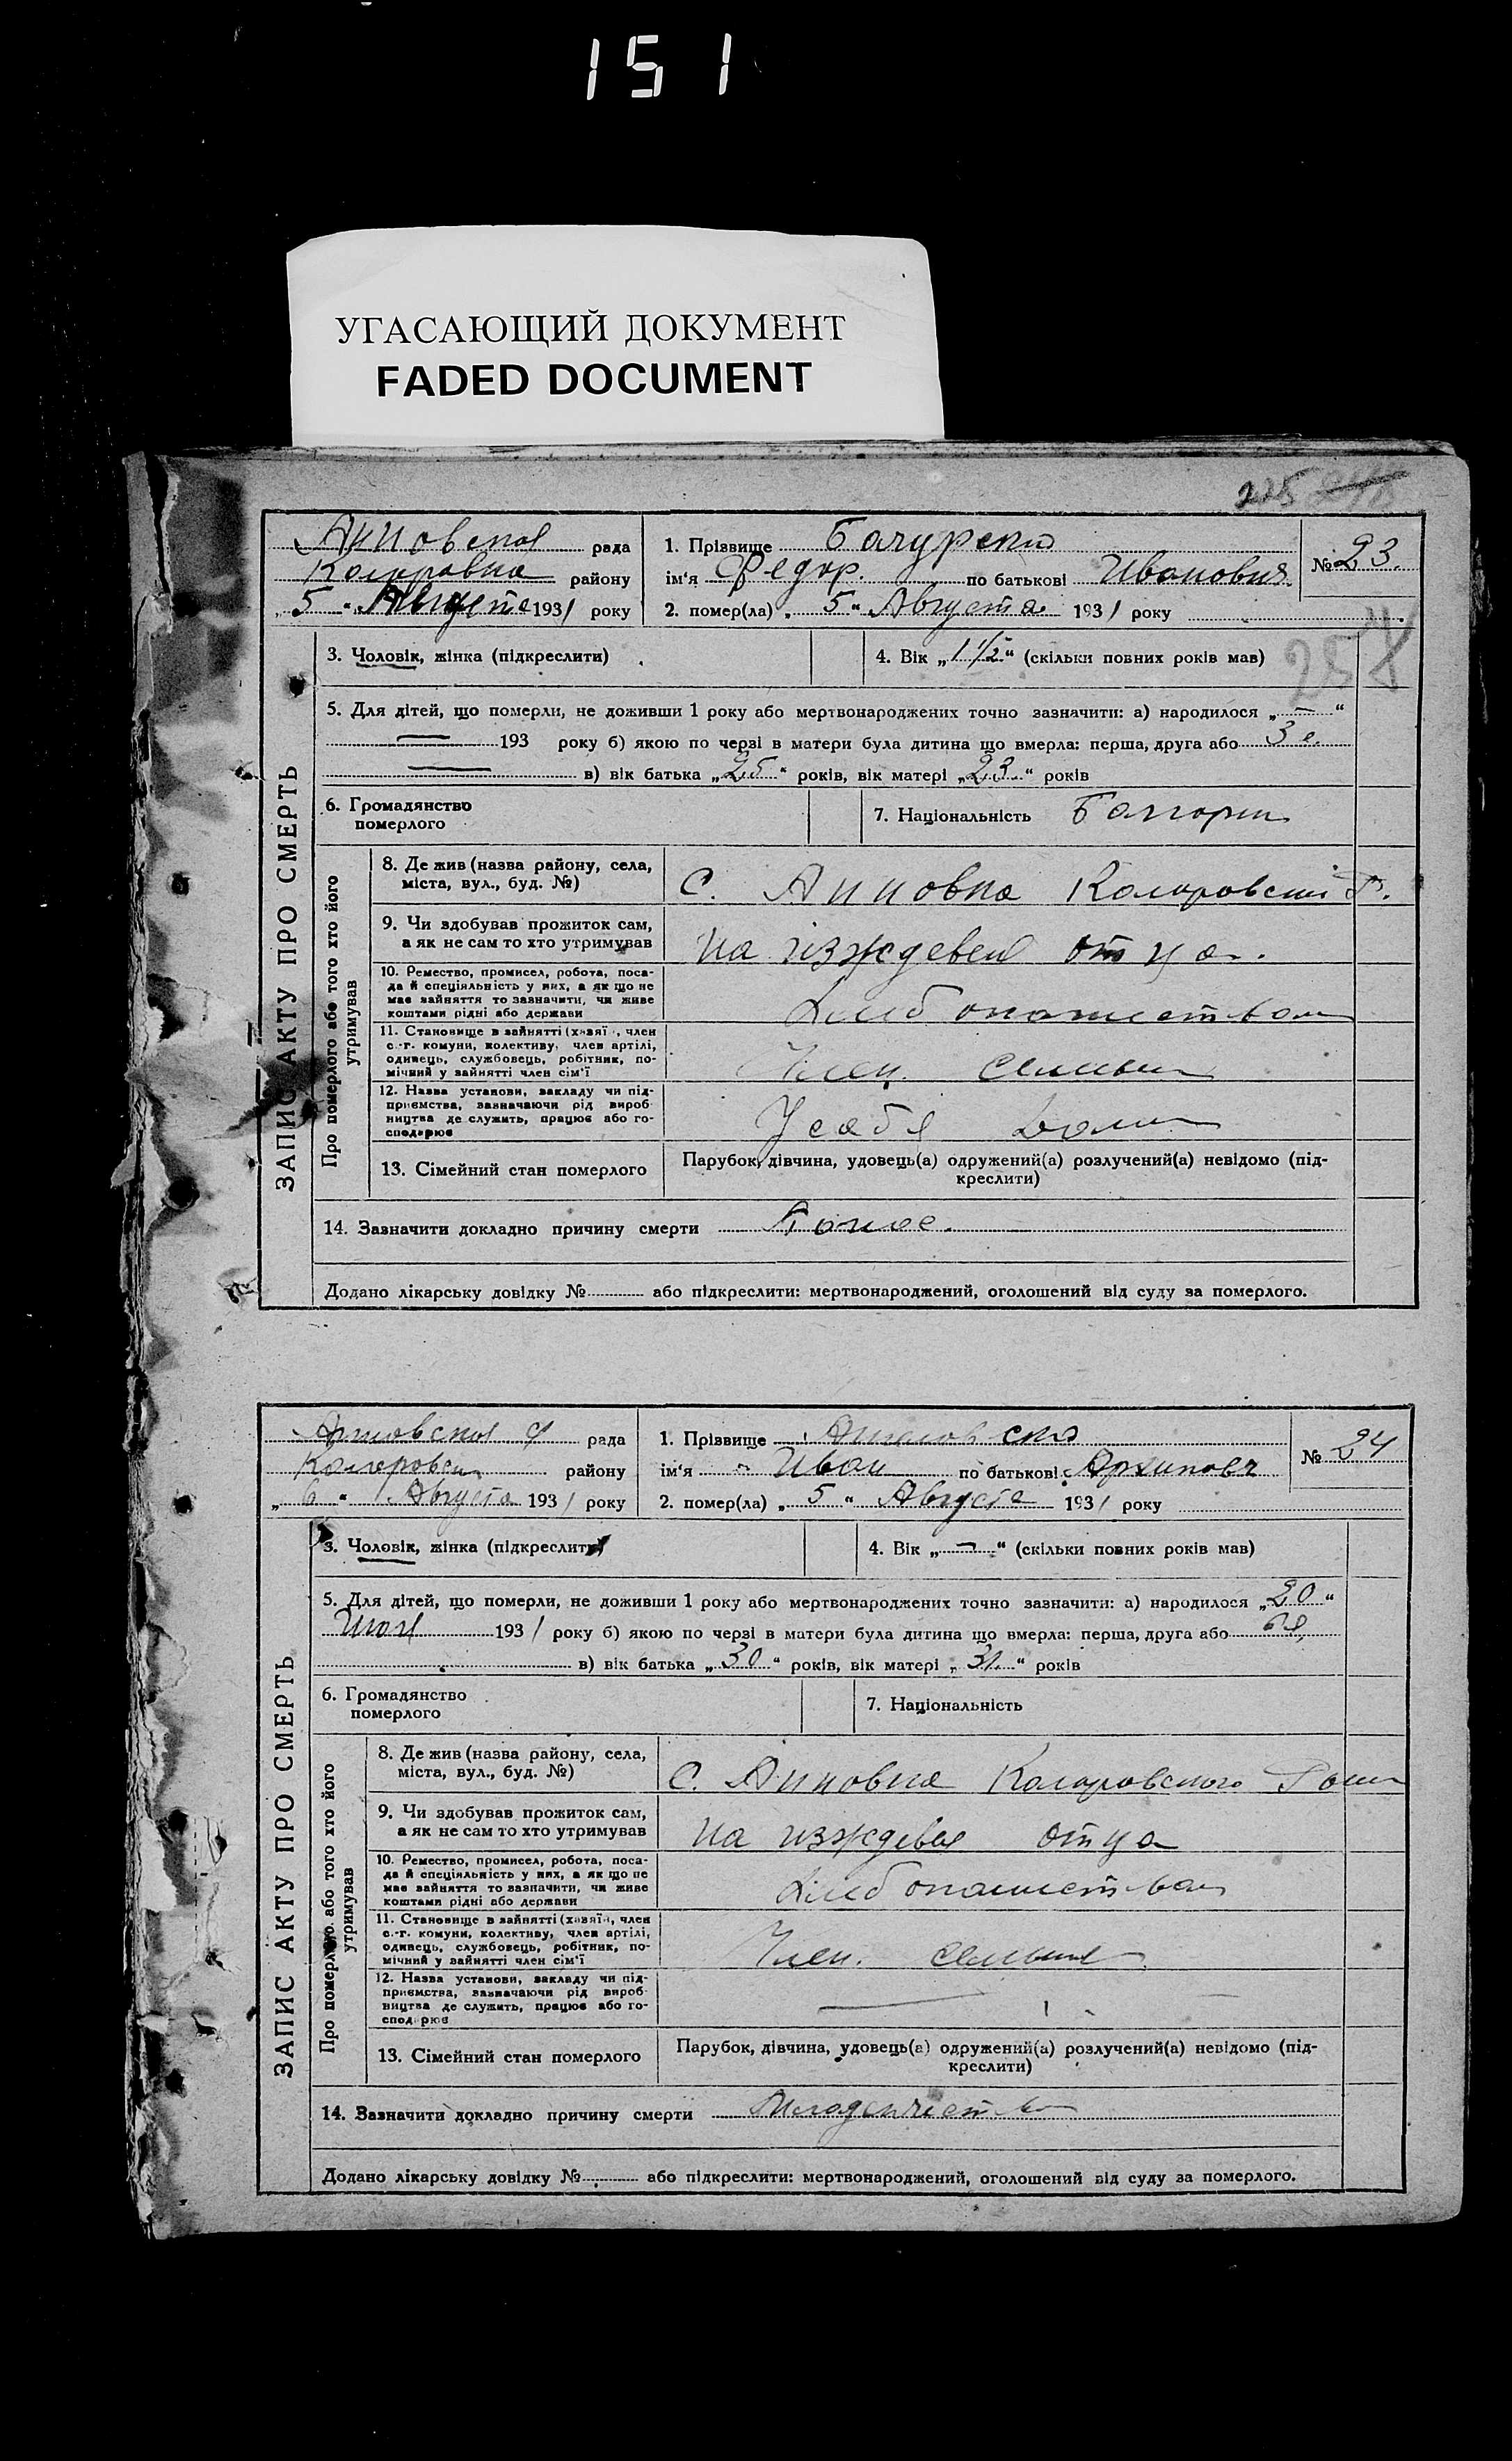 151
УГАСАЮЩИЙ ДОКУМЕНТ
FADED DOCUMENT
225
257
ЗАПИС АКТУ ПРО СМЕРТЬ
рада
району
„5“ Августа 1931 року
1. Прізвище
ім'я Федор. по батькові Ивановия
2. помер(ла) „5“ Августа 1931 року
№ 23.
3. Чоловік, жінка (підкреслити)
4. Вік „1 1/2“ (скільки повних років мав)
5. Для дітей, що померли, не доживши 1 року або мертвонароджених точно зазначити: а) народилося „—“
— 193 року б) якою по черзі в матери була дитина що вмерла: перша, друга або 3 е.
— в) вік батька „25“ років, вік матері „23“ років
6. Громадянство
померлого
7. Національність
Про померлого або того хто його
утримував
8. Де жив (назва району, села,
міста, вул., буд. №)
С. Анновка
9. Чи здобував прожиток сам,
а як не сам то хто утримував
на отца.
10. Ремество, промисел, робота, поса-
да й спеціяльність у них, а як що не
має зайняття то зазначити, чи живе
коштами рідні або держави
11. Становище в зайнятті (хазяїн, член
с.-г. комуни, колективу, член артілі,
одинець, службовець, робітник, по-
мічний у зайнятті член сім'ї
Член.
12. Назва установи, закладу чи під-
приємства, зазначаючи рід вироб-
ництва де служить, працює або го-
сподарює
13. Сімейний стан померлого
Парубок, дівчина, удовець(а) одружений(а) розлучений(а) невідомо (під-
креслити)
14. Зазначити докладно причину смерти Понос.
Додано лікарську довідку № або підкреслити: мертвонароджений, оголошений від суду за померлого.
ЗАПИС АКТУ ПРО СМЕРТЬ
рада
району
„6“ Августа 1931 року
1. Прізвище
ім'я Иван по батькові
2. помер(ла) „5“ Августа 1931 року
№ 24
3. Чоловік, жінка (підкреслити)
4. Вік „—“ (скільки повних років мав)
5. Для дітей, що померли, не доживши 1 року або мертвонароджених точно зазначити: а) народилося „20“
1931 року б) якою по черзі в матери була дитина що вмерла: перша, друга або
в) вік батька „30“ років, вік матері „31.“ років
6. Громадянство
померлого
7. Національність
Про померлого або того хто його
утримував
8. Де жив (назва району, села,
міста, вул., буд. №)
С. Анновка
9. Чи здобував прожиток сам,
а як не сам то хто утримував
на отца
10. Ремество, промисел, робота, поса-
да й спеціяльність у них, а як що не
має зайняття то зазначити, чи живе
коштами рідні або держави
11. Становище в зайнятті (хазяїн, член
с.-г. комуни, колективу, член артілі,
одинець, службовець, робітник, по-
мічний у зайнятті член сім'ї
Член.
12. Назва установи, закладу чи під-
приємства, зазначаючи рід вироб-
ництва де служить, працює або го-
сподарює
—
13. Сімейний стан померлого
Парубок, дівчина, удовець(а) одружений(а) розлучений(а) невідомо (під-
креслити)
14. Зазначити докладно причину смерти
Додано лікарську довідку № або підкреслити: мертвонароджений, оголошений від суду за померлого.